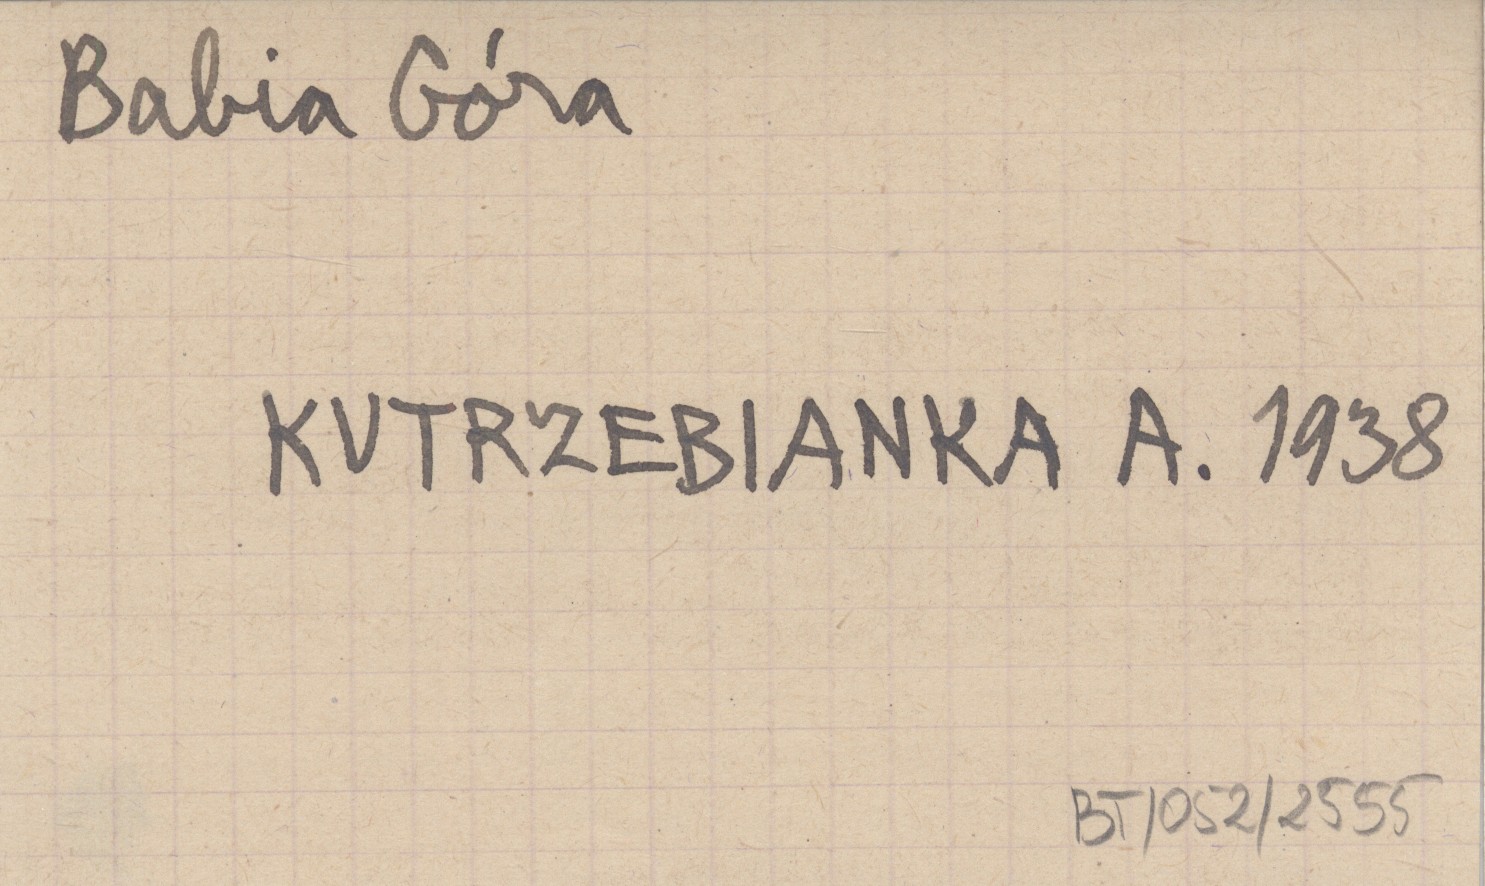 Babia Góra
KUTRZEBIANKA A. 1938
BT/052/2555